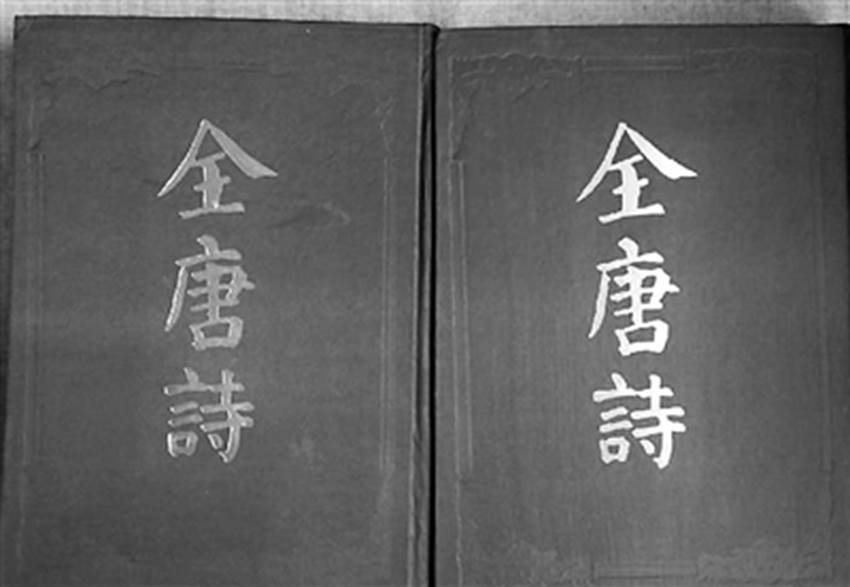 全唐詩
全唐詩